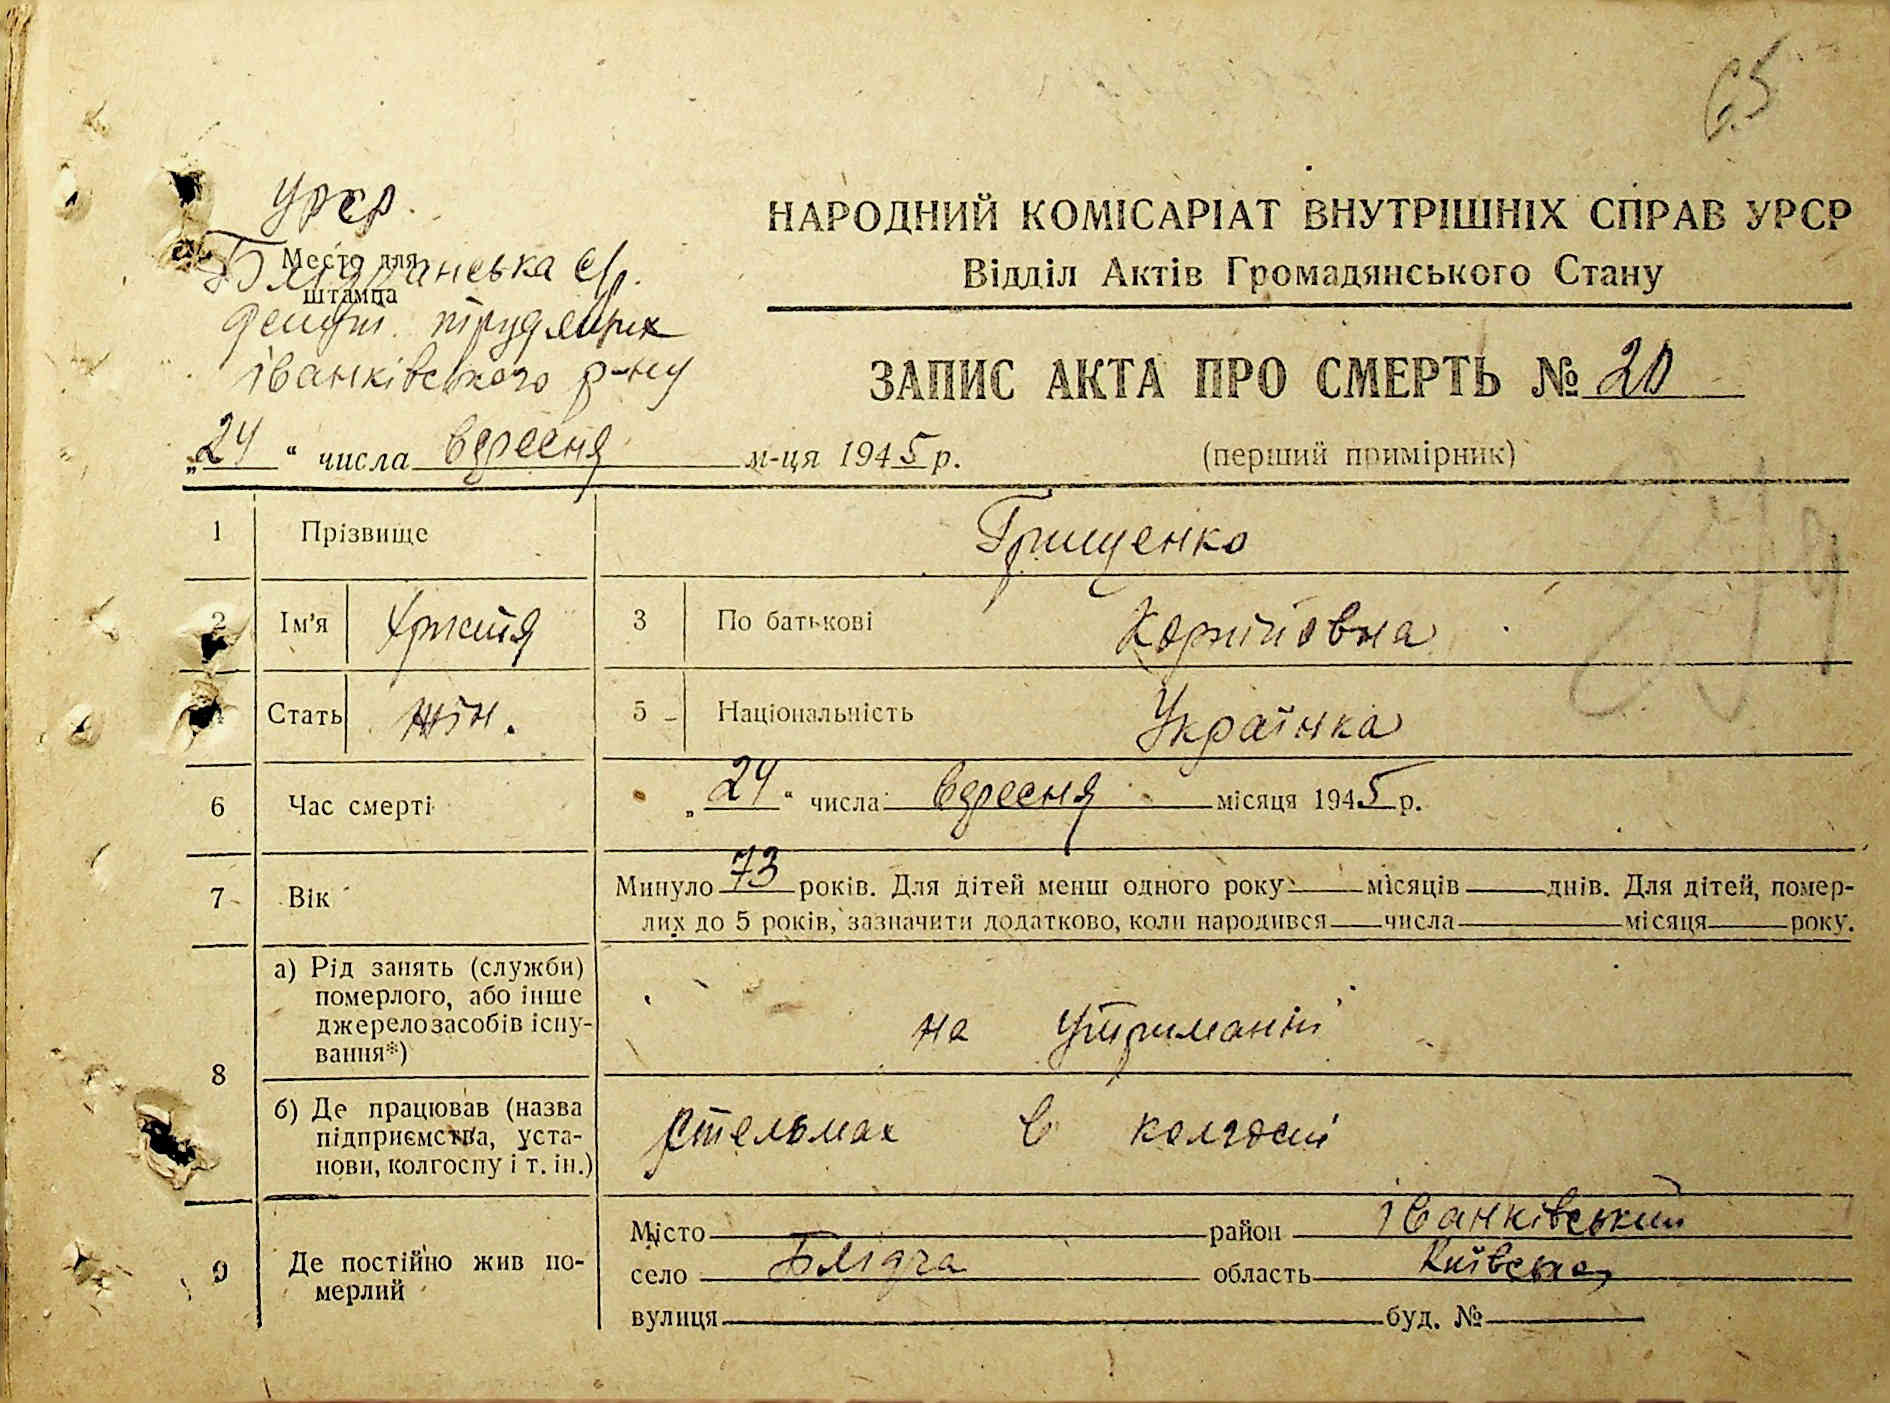 65
УРСР
НАРОДНИЙ КОМІСАРІАТ ВНУТРІШНІХ СПРАВ УРСР
Место для
штампа
Блідчанська с/р.
Відділ Актів Громадянського Стану
депут. трудящих
іванківського р-ну
ЗАПИС АКТА ПРО СМЕРТЬ № 20
„24“ числа вересня м-ця 1945 р.
(перший примірник)
1 Прізвище Грищенко
2 Ім'я Христя 3 По батькові Корнійовна
4 Стать жін. 5 Національність Українка
6 Час смерті „24“ числа вересня місяця 1945 р.
7 Вік Минуло 73 років. Для дітей менш одного року місяців днів. Для дітей, помер-
лих до 5 років, зазначити додатково, коли народився числа місяця року.
8 а) Рід занять (служби)
померлого, або інше
джерело засобів існу-
вання*)
на утриманні
б) Де працював (назва
підприємства, уста-
нови, колгоспу і т. ін.)
стельмах в колгоспі
9 Де постійно жив по-
мерлий
Місто район іванківський
село Блідча область Київська
вулиця буд. №